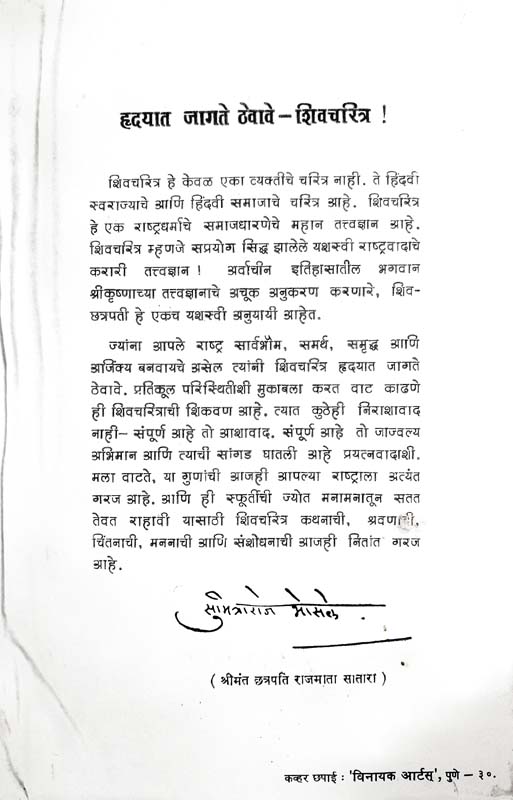 हृदयात जागते ठेवावे – शिवचरित्र !
शिवचरित्र हे केवळ एका व्यक्तीचे चरित्र नाही. ते हिंदवी
स्वराज्याचे आणि हिंदवी समाजाचे चरित्र आहे. शिवचरित्र
हे एक राष्ट्रधर्माचे समाजधारणेचे महान तत्त्वज्ञान आहे.
शिवचरित्र म्हणजे सप्रयोग सिद्ध झालेले यशस्वी राष्ट्रवादाचे
करारी तत्त्वज्ञान ! अर्वाचीन इतिहासातील भगवान
श्रीकृष्णाच्या तत्त्वज्ञानाचे अचूक अनुकरण करणारे, शिव-
छत्रपती हे एकच यशस्वी अनुयायी आहेत.
ज्यांना आपले राष्ट्र सार्वभौम, समर्थ, समृद्ध आणि
अर्जिक्य बनवायचे असेल त्यांनी शिवचरित्र हृदयात जागते
ठेवावे. प्रतिकूल परिस्थितीशी मुकाबला करत वाट काढणे
ही शिवचरित्राची शिकवण आहे. त्यात कुठेही निराशावाद
नाही– संपूर्ण आहे तो आशावाद. संपूर्ण आहे तो जाज्वल्य
अभिमान आणि त्याची सांगड घातली आहे प्रयत्नवादाशी.
मला वाटते, या गुणांची आजही आपल्या राष्ट्राला अत्यंत
गरज आहे. आणि ही स्फूर्तीची ज्योत मनामनातून सतत
तेवत राहावी यासाठी शिवचरित्र कथनाची, श्रवणाची,
चिंतनाची, मननाची आणि संशोधनाची आजही नितांत गरज
आहे.
सुमित्राराजे भोसले
( श्रीमंत छत्रपति राजमाता सातारा )
कव्हर छपाई : 'विनायक आर्टस्', पुणे – ३०.